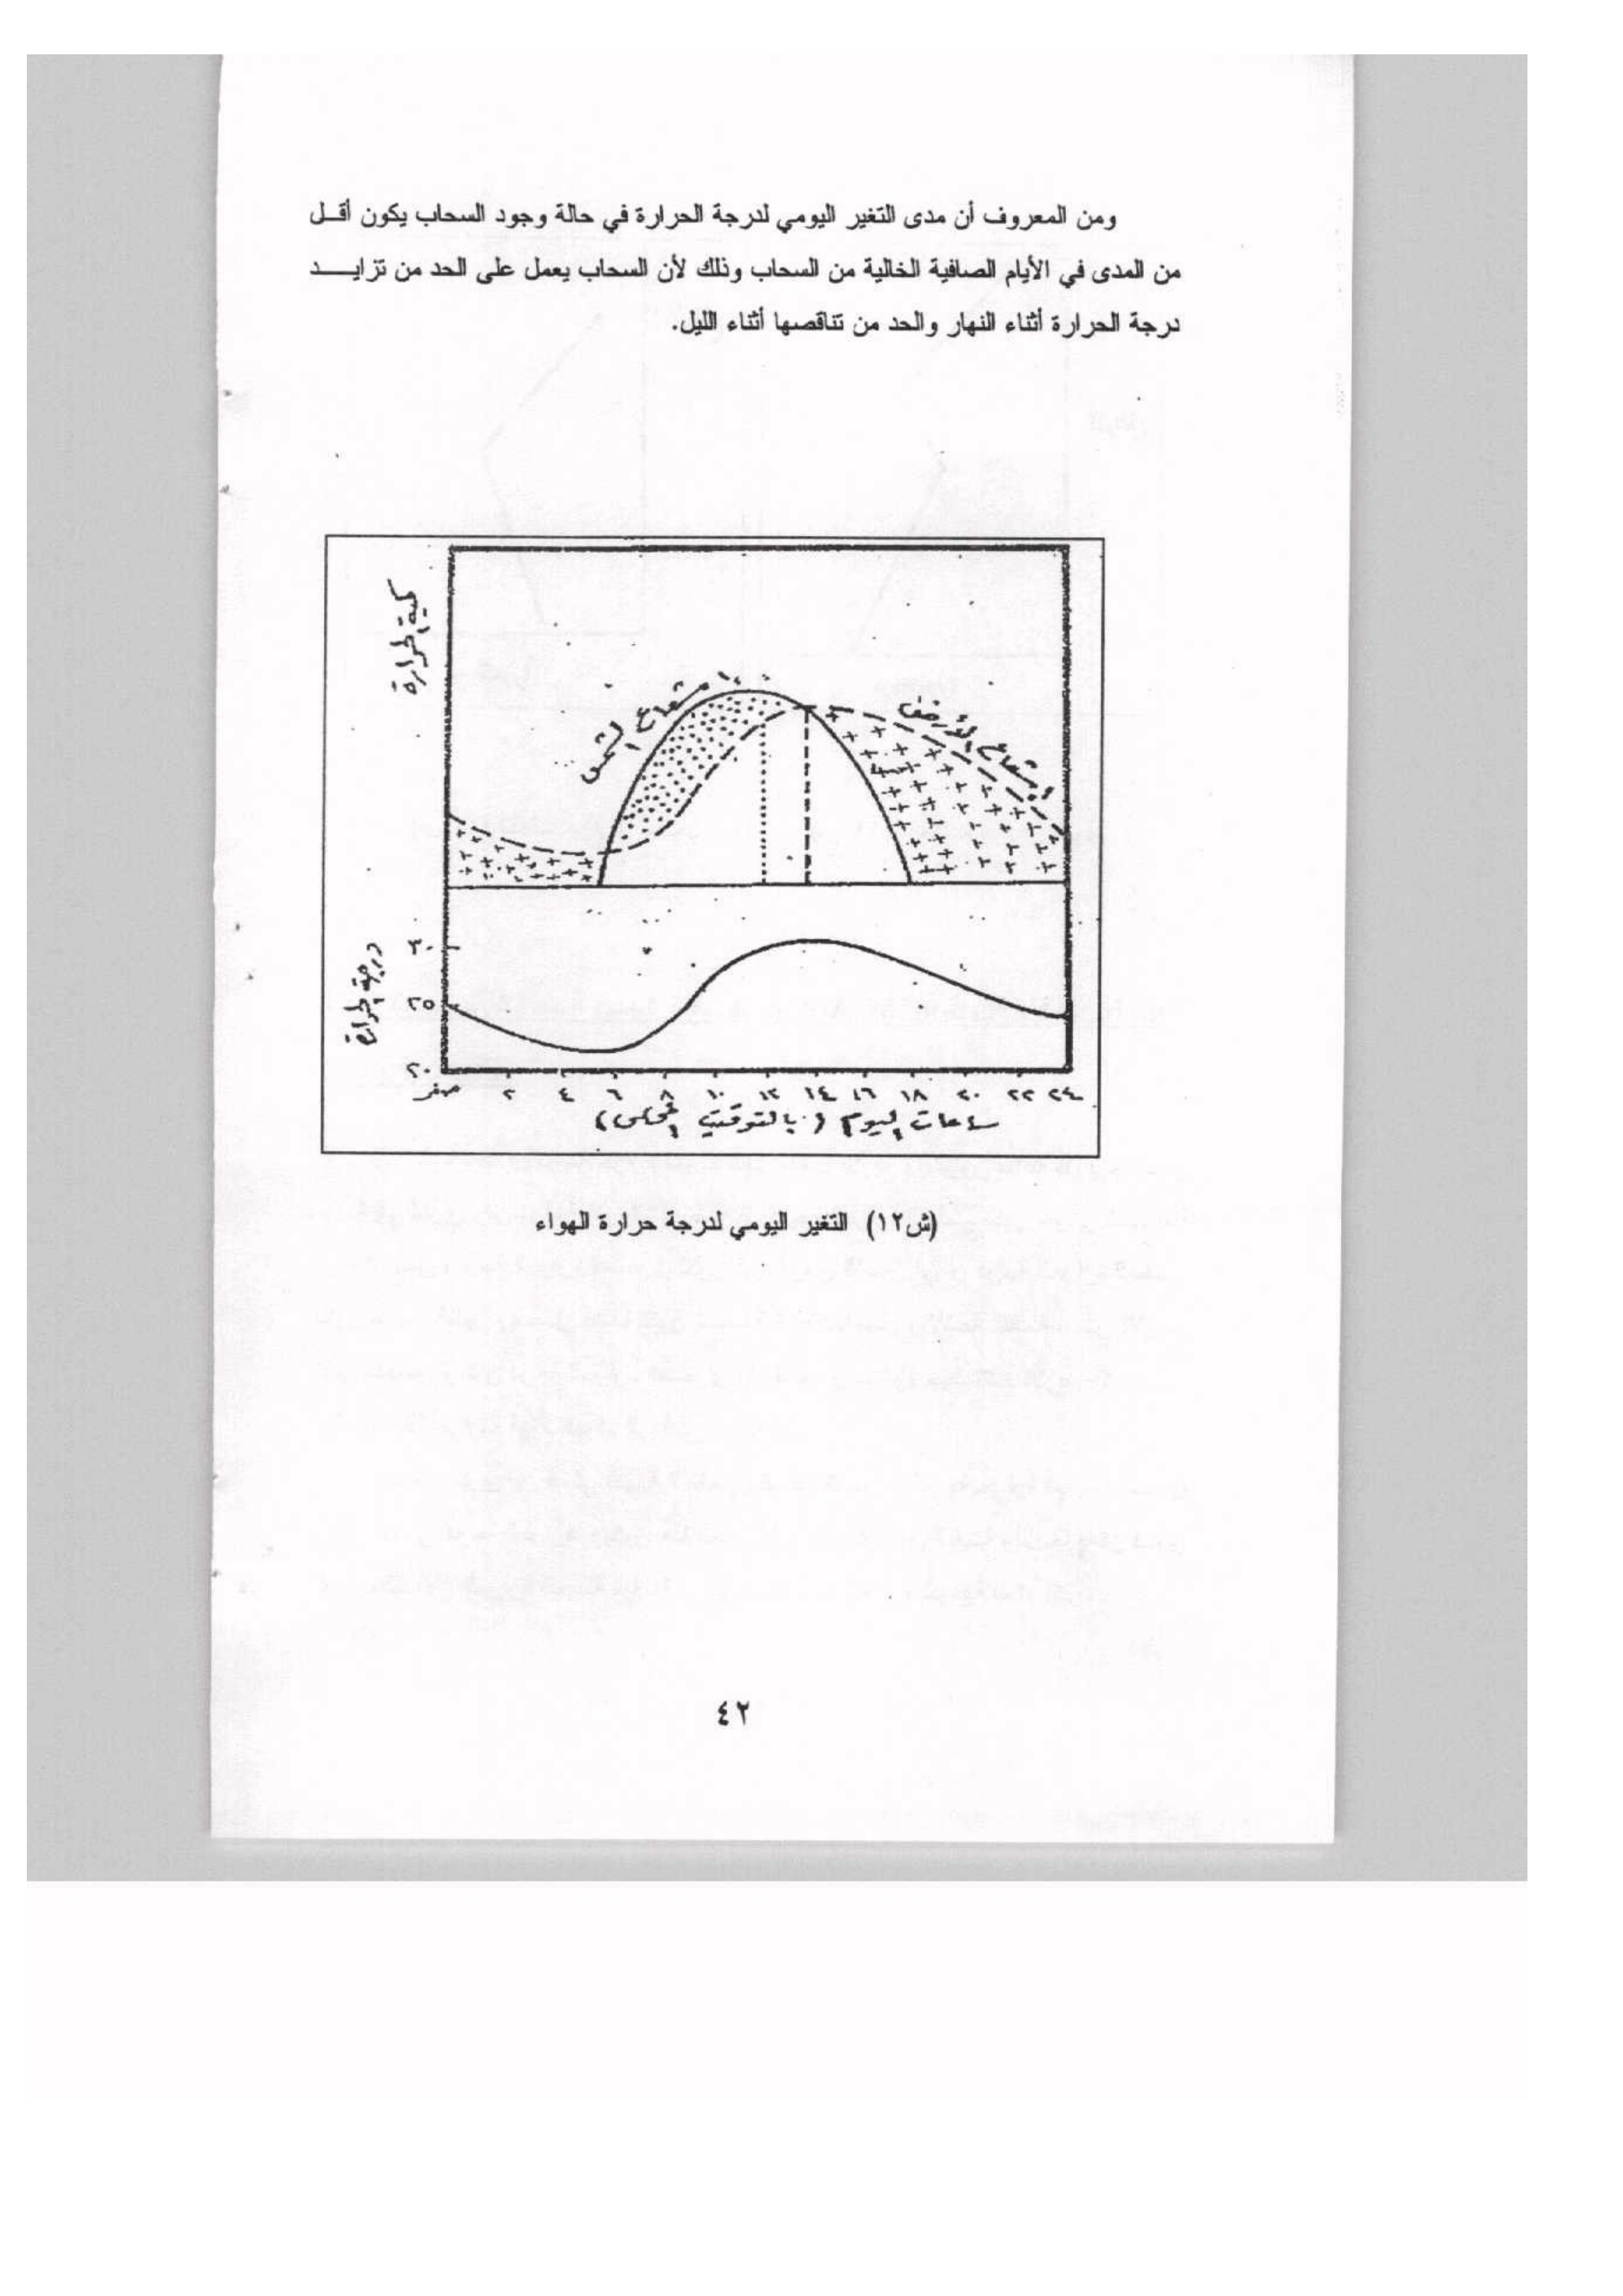 ومن المعروف أن مدى التغير اليومي لدرجة الحرارة في حالة وجود السحاب يكون أقل
من المدى في الأيام الصافية الخالية من السحاب وذلك لأن السحاب يعمل على الحد من تزايد
درجة الحرارة أثناء النهار والحد من تناقصها أثناء الليل.
كمية الحرارة
إشعاع الشمس
إشعاع الأرض
درجة الحرارة
٣٠
٢٥
٢٠
صفر ٢ ٤ ٦ ٨ ١٠ ١٢ ١٤ ١٦ ١٨ ٢٠ ٢٢ ٢٤
ساعات اليوم (بالتوقيت المحلى)
(ش١٢) التغير اليومي لدرجة حرارة الهواء
٤٢